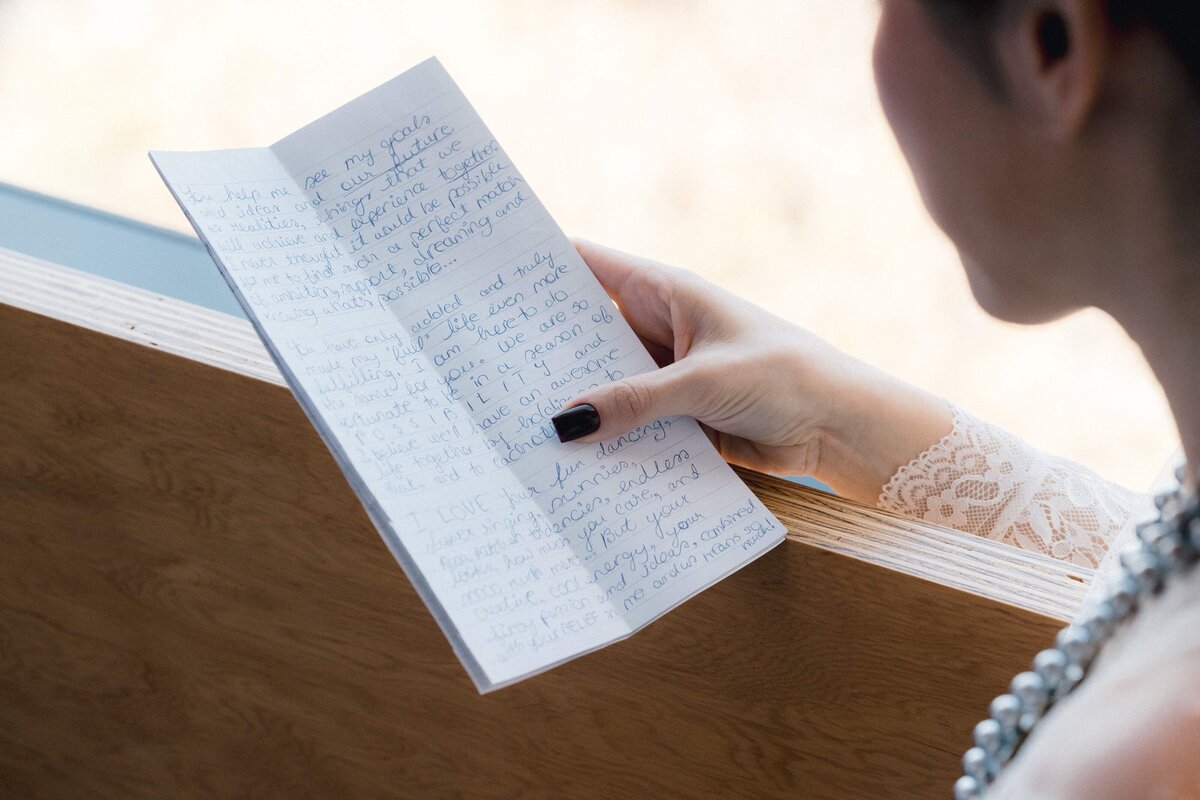 You help me see my goals
and ideas and our future
as realities, things that we
will achieve and experience together.
I never thought it would be possible
for me to find such a perfect match
of ambition, support, dreaming and
knowing what's possible...
You have only added and truly
made my "full" life even more
fulfilling. I am here to do
the same for you. We are so
fortunate to be in a season of
POSSIBILITY and
I believe we'll have an awesome
life together of holding to
and to each other
I LOVE your fun dancing,
singing, sunnies,
tendencies, endless
looks, how much you care, and
sooo much more... But your
creative, cool energy, your
passion and ideas, combined
with your BELIEF in me and us means so much!